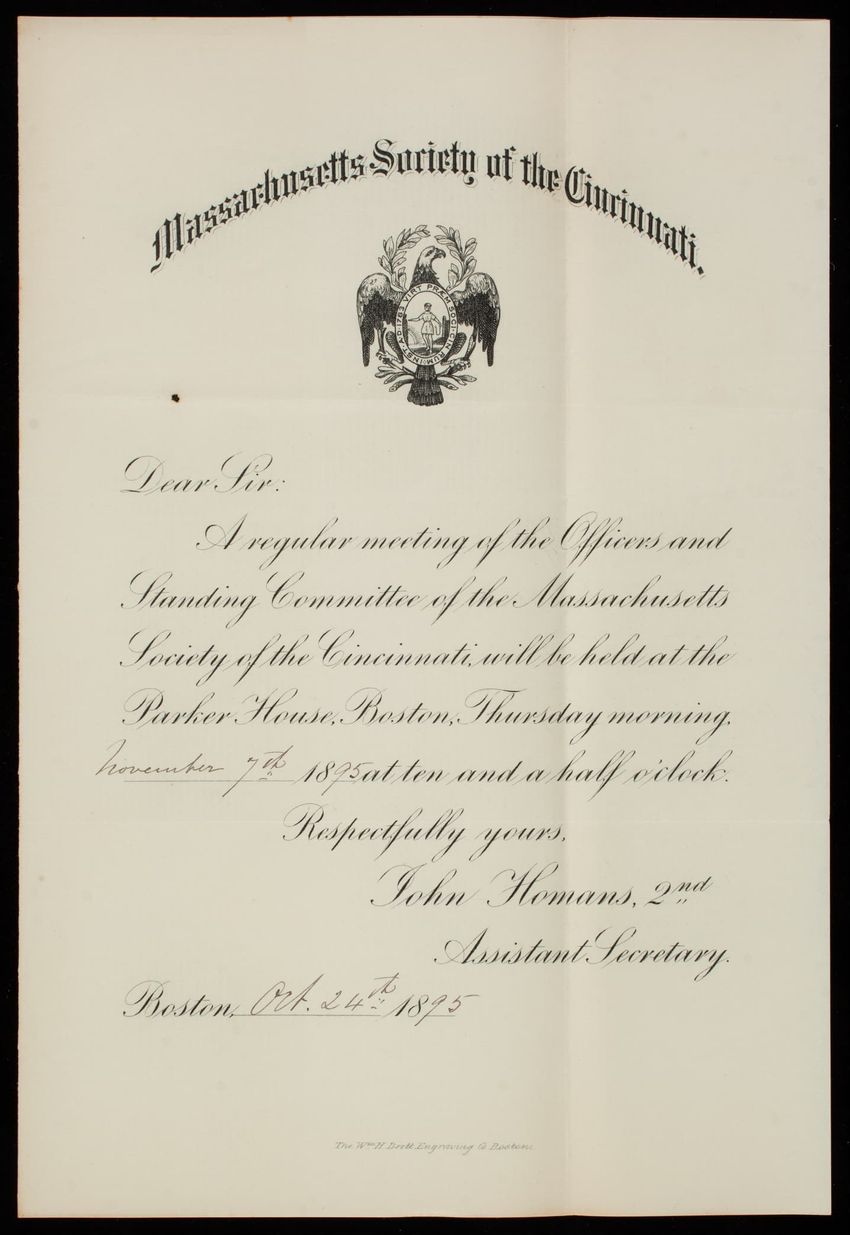 Massachusetts Society of the Cincinnati.
VIRT. PRÆM. SOCI. CIN. RUM. INST. A.D. 1783
Dear Sir:
A regular meeting of the Officers and
Standing Committee of the Massachusetts
Society of the Cincinnati, will be held at the
Parker House, Boston, Thursday morning,
November 7th 1895 at ten and a half o'clock.
Respectfully yours,
John Homans, 2nd
Assistant Secretary.
Boston, Oct. 24th 1895
The Wm H. Brett Engraving Co Boston.